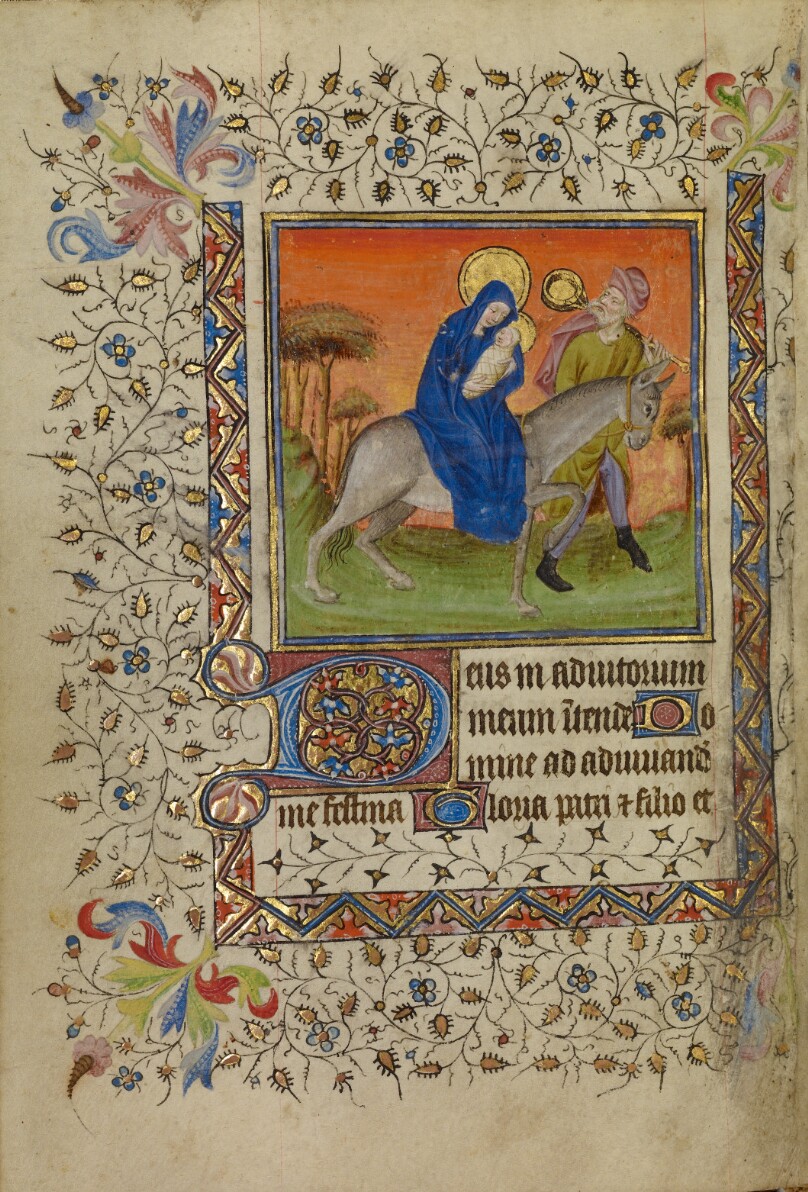 Deus in adiutorium
meum ītende Do
mine ad adiuuand̄
me festina Gloria patri ⁊ filio et